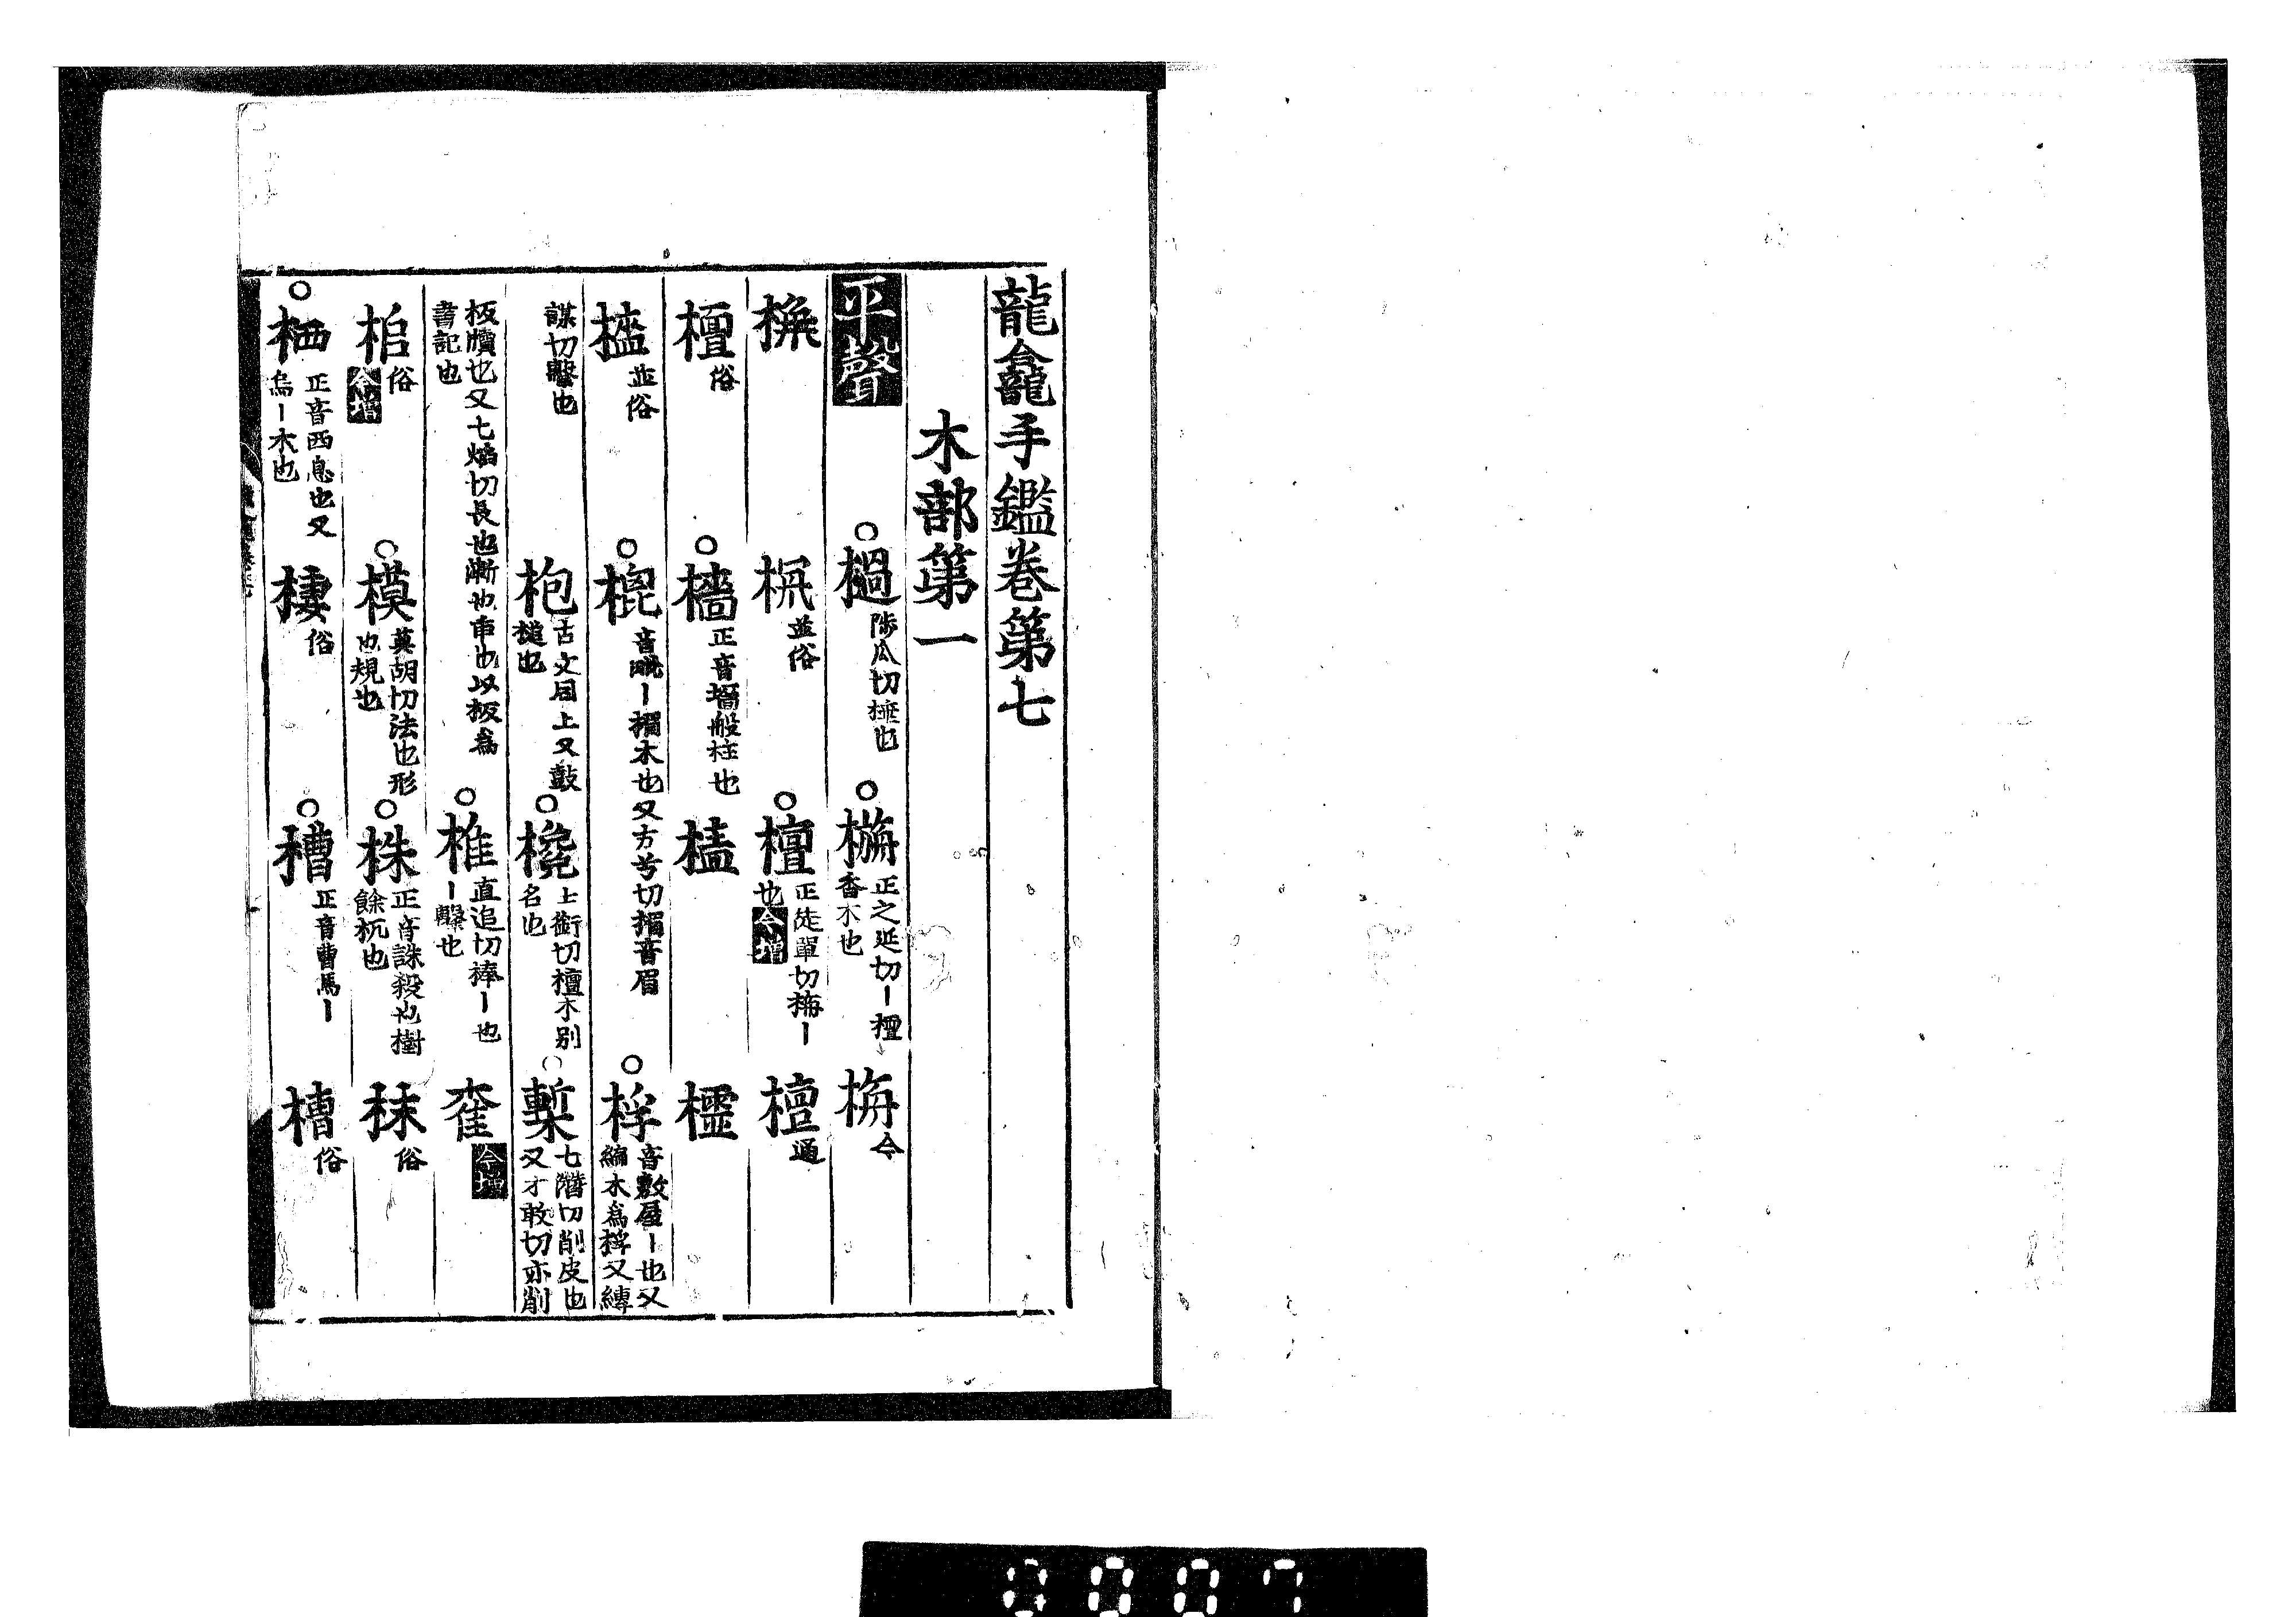 龍龕手鑑卷第七
木部第一
平聲 ○檛陟瓜切捶也 ○栴正之延切丨檀香木也 栴今
並俗 ○檀正徒單切栴丨也今增 檀通
檀俗 ○檣正音墻船柱也
榼並俗 ○㮰音毗丨楣木也又方兮切楣音眉 ○桴音敷屋丨也又編木爲桴又縛
謀切擊也 枹古文同上又鼓槌也 ○欃士銜切檀木別名也 ○槧七潛切削皮也又才敢切亦削
板牘也又七焰切長也漸也牽也以板爲書記也 ○椎直追切棒丨也丨擊也 今增
俗今增 ○模莫胡切法也形也規也 ○株正音誅殺也樹餘杌也 俗
○栖正音西息也又烏丨木也 棲俗 ○槽正音曹馬丨 槽俗
0007